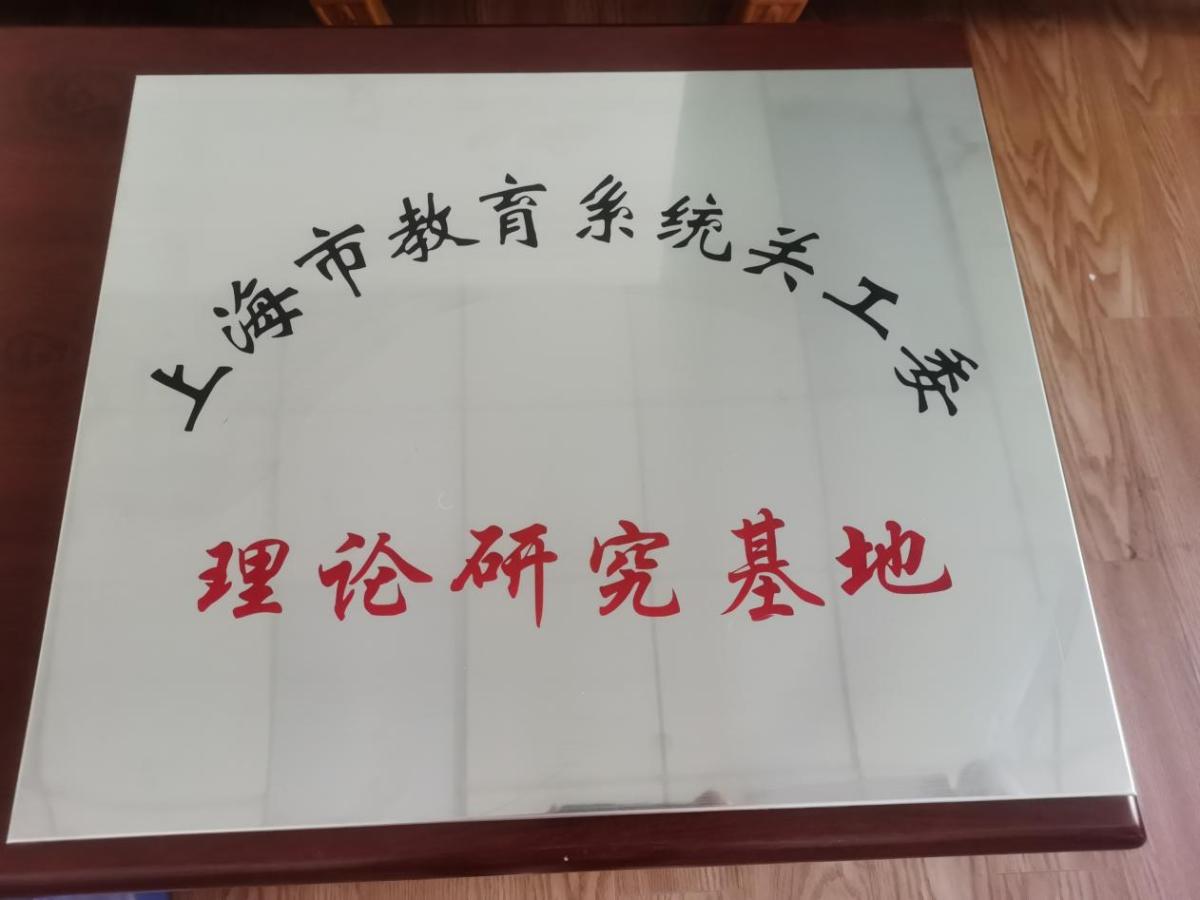 上海市教育系统关工委
理论研究基地